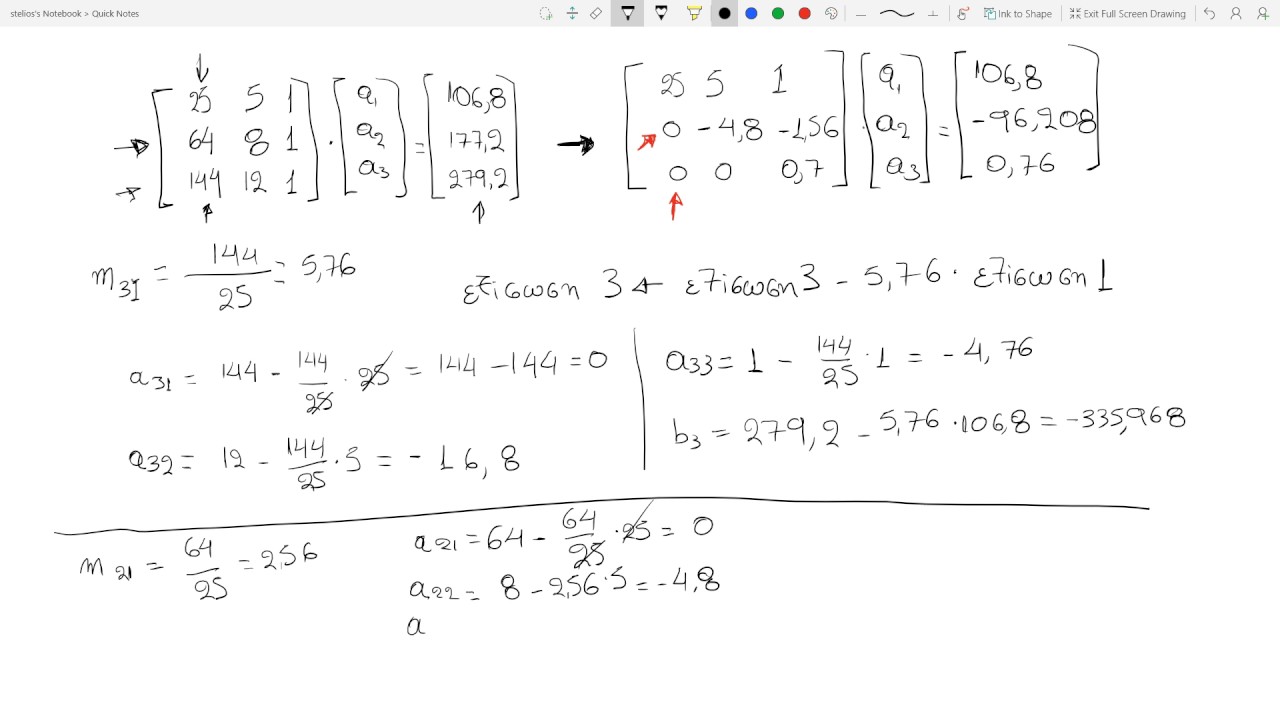 stelios's Notebook > Quick Notes
Ink to Shape
Exit Full Screen Drawing
25 5 1
64 8 1
144 12 1
·
a1
a2
a3
=
106,8
177,2
279,2
→
25 5 1
0 -4,8 -1,56
0 0 0,7
·
a1
a2
a3
=
106,8
-96,208
0,76
m31 = 144/25 = 5,76
εξίσωση 3 ← εξίσωση 3 - 5,76 · εξίσωση 1
a31 = 144 - 144/25 · 25 = 144 - 144 = 0
a32 = 12 - 144/25 · 5 = -16,8
a33 = 1 - 144/25 · 1 = -4,76
b3 = 279,2 - 5,76 · 106,8 = -335,968
m21 = 64/25 = 2,56
a21 = 64 - 64/25 · 25 = 0
a22 = 8 - 2,56 · 5 = -4,8
a